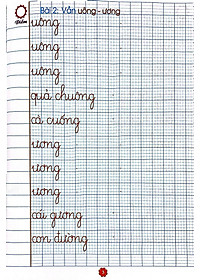 Điểm
Bài 2: Vần uông - ương
uông
uông
uông
quả chuông
cà cuống
ương
ương
ương
cái gương
con đường